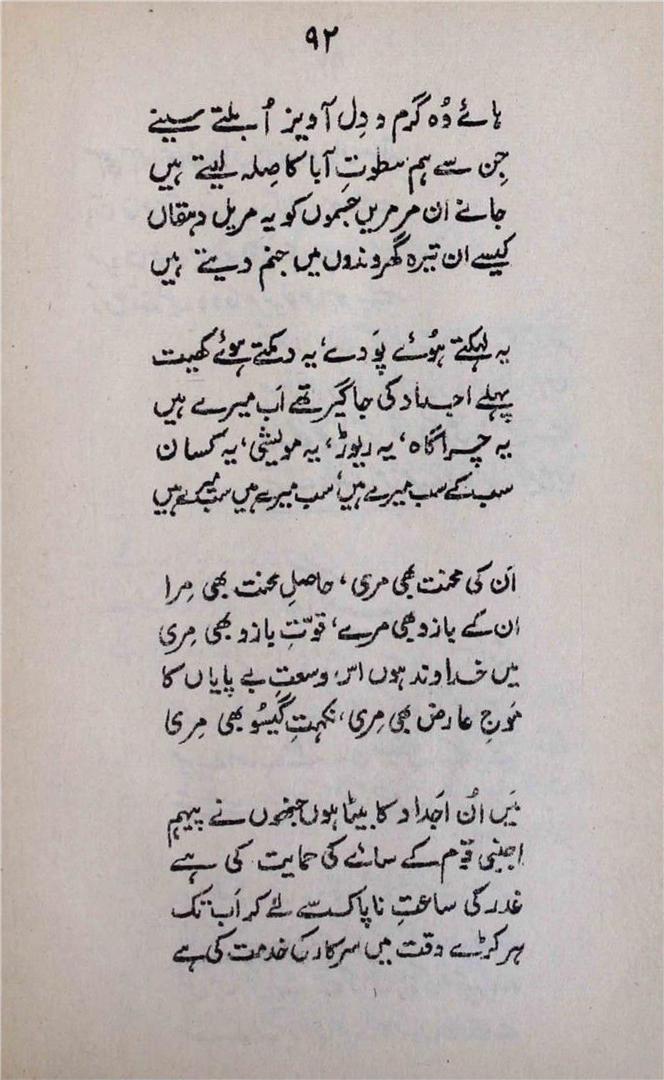 ۹۲
ہائے وُہ گرم و دِل آویز اُبلتے سینے
جِن سے ہم سطوتِ آبا کا صِلہ لیتے ہیں
جانے ان مرمریں جسموں کو یہ مریل دہقاں
کیسے ان تیرہ گھروندوں میں جنم دیتے ہیں
یہ لہکتے ہوُئے پَودے، یہ دمکتے ہوئے کھیت
پہلے اجداد کی جاگیر تھے اَب میرے ہیں
یہ چراگاہ، یہ ریوڑ، یہ مویشی، یہ کسان
سب کے سب میرے ہیں، سب میرے ہیں سب میرے ہیں
اَن کی محنت بھی مری، حاصلِ محنت بھی مِرا
ان کے بازو بھی مرے، قوّتِ بازو بھی مِری
میں خداوند ہوں اس وسعتِ بے پایاں کا
مَوجِ عارض بھی مِری، نکہتِ گیسُو بھی مِری
مَیں اُن اَجداد کا بیٹا ہوں جنھوں نے پیہم
اجنبی قوم کے سائے کی حمایت کی ہے
غدر کی ساعتِ ناپاک سے لئے کر اَب تک
ہر کڑے وقت میں سرکار کی خدمت کی ہے